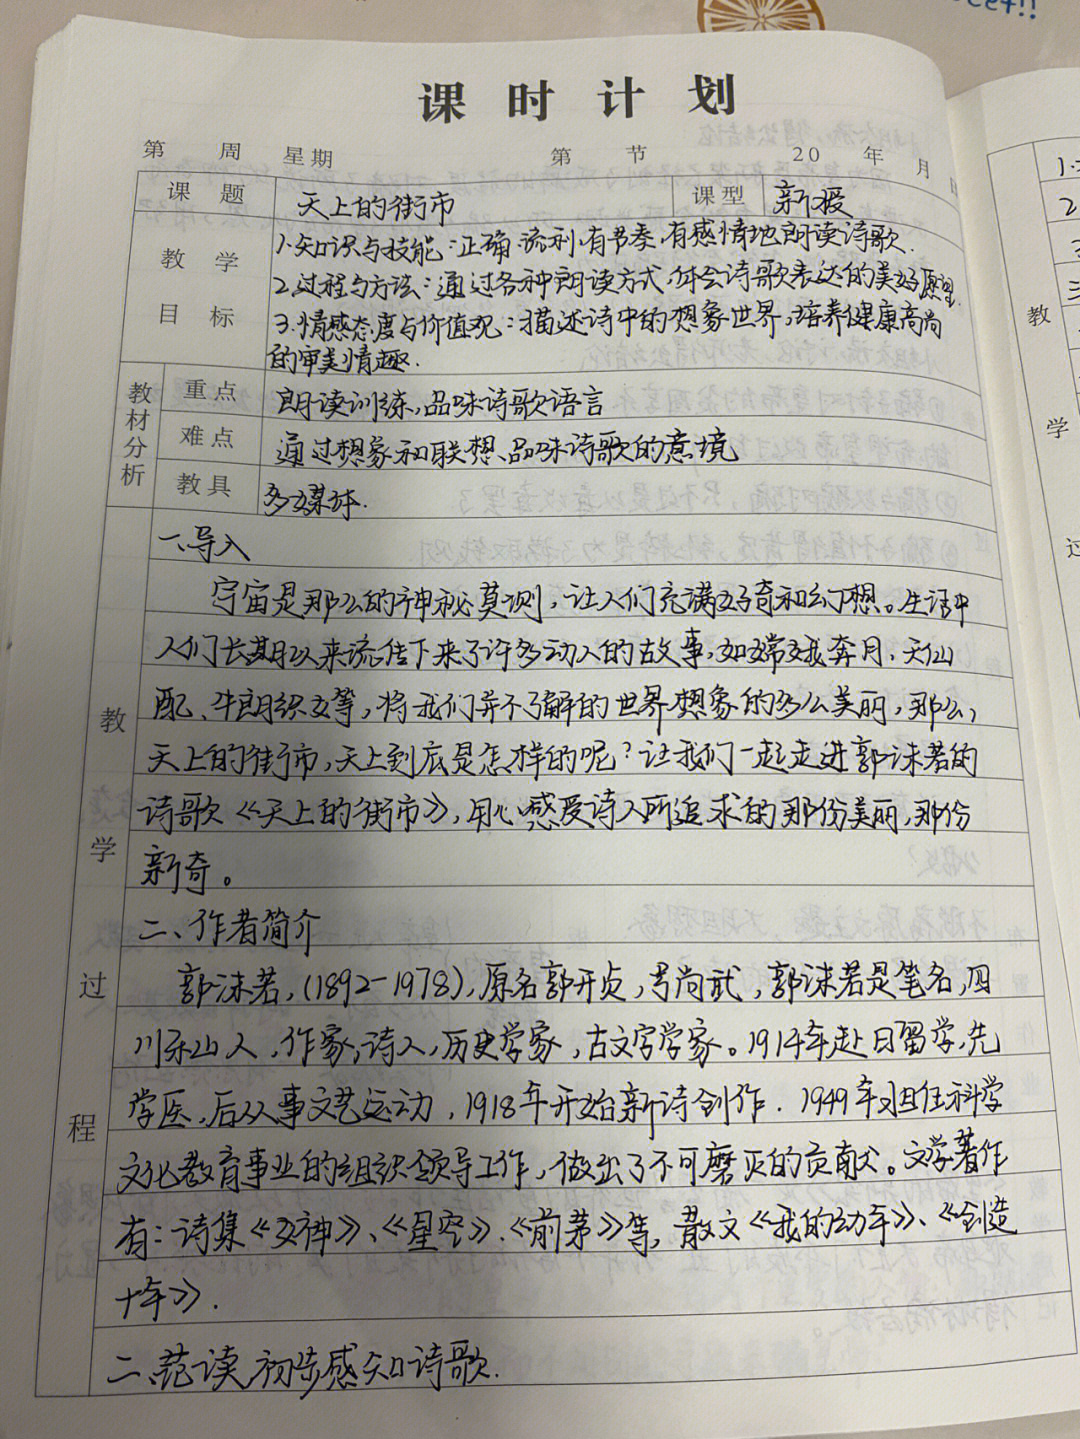 课时计划
第 周 星期 第 节 20 年 月
课题 天上的街市 课型 新授
教学目标
1.知识与技能:正确.流利,有节奏,有感情地朗读诗歌.
2.过程与方法:通过各种朗读方式,体会诗歌表达的美好原望.
3.情感态度与价值观:描述诗中的想象世界,培养健康高尚
的审美情趣.
教材分析
重点 朗读训练,品味诗歌语言
难点 通过想象和联想、品味诗歌的意境
教具 多媒体.
教学过程
一、导入
宇宙是那么的神秘莫测,让人们充满好奇和幻想。生活中
人们长期以来流传下来了许多动人的故事,如嫦娥奔月,天仙
配、牛朗织女等,将我们并不了解的世界想象的多么美丽,那么,
天上的街市,天上到底是怎样的呢?让我们一起走进郭沫若的
诗歌《天上的街市》,用心感受诗人所追求的那份美丽,那份
新奇。
二、作者简介
郭沫若,(1892-1978),原名郭开贞,号尚武,郭沫若是笔名,四
川乐山人,作家,诗人,历史学家,古文字学家。1914年赴日留学,先
学医,后从事文艺运动,1918年开始新诗创作.1949年担任科学
文化教育事业的组织领导工作,做出了不可磨灭的贡献。文学著作
有:诗集《女神》、《星空》.《前茅》等,散文《我的幼年》、《创造
十年》.
二、范读,初步感知诗歌.
教
学
过
1.
2